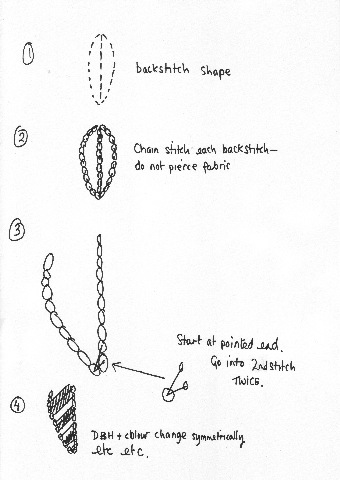 1
backstitch shape
2
Chain stitch each backstitch—
do not pierce fabric
3
Start at pointed end.
Go into 2nd stitch
TWICE.
4
DBH + colour change symmetrically
etc etc.